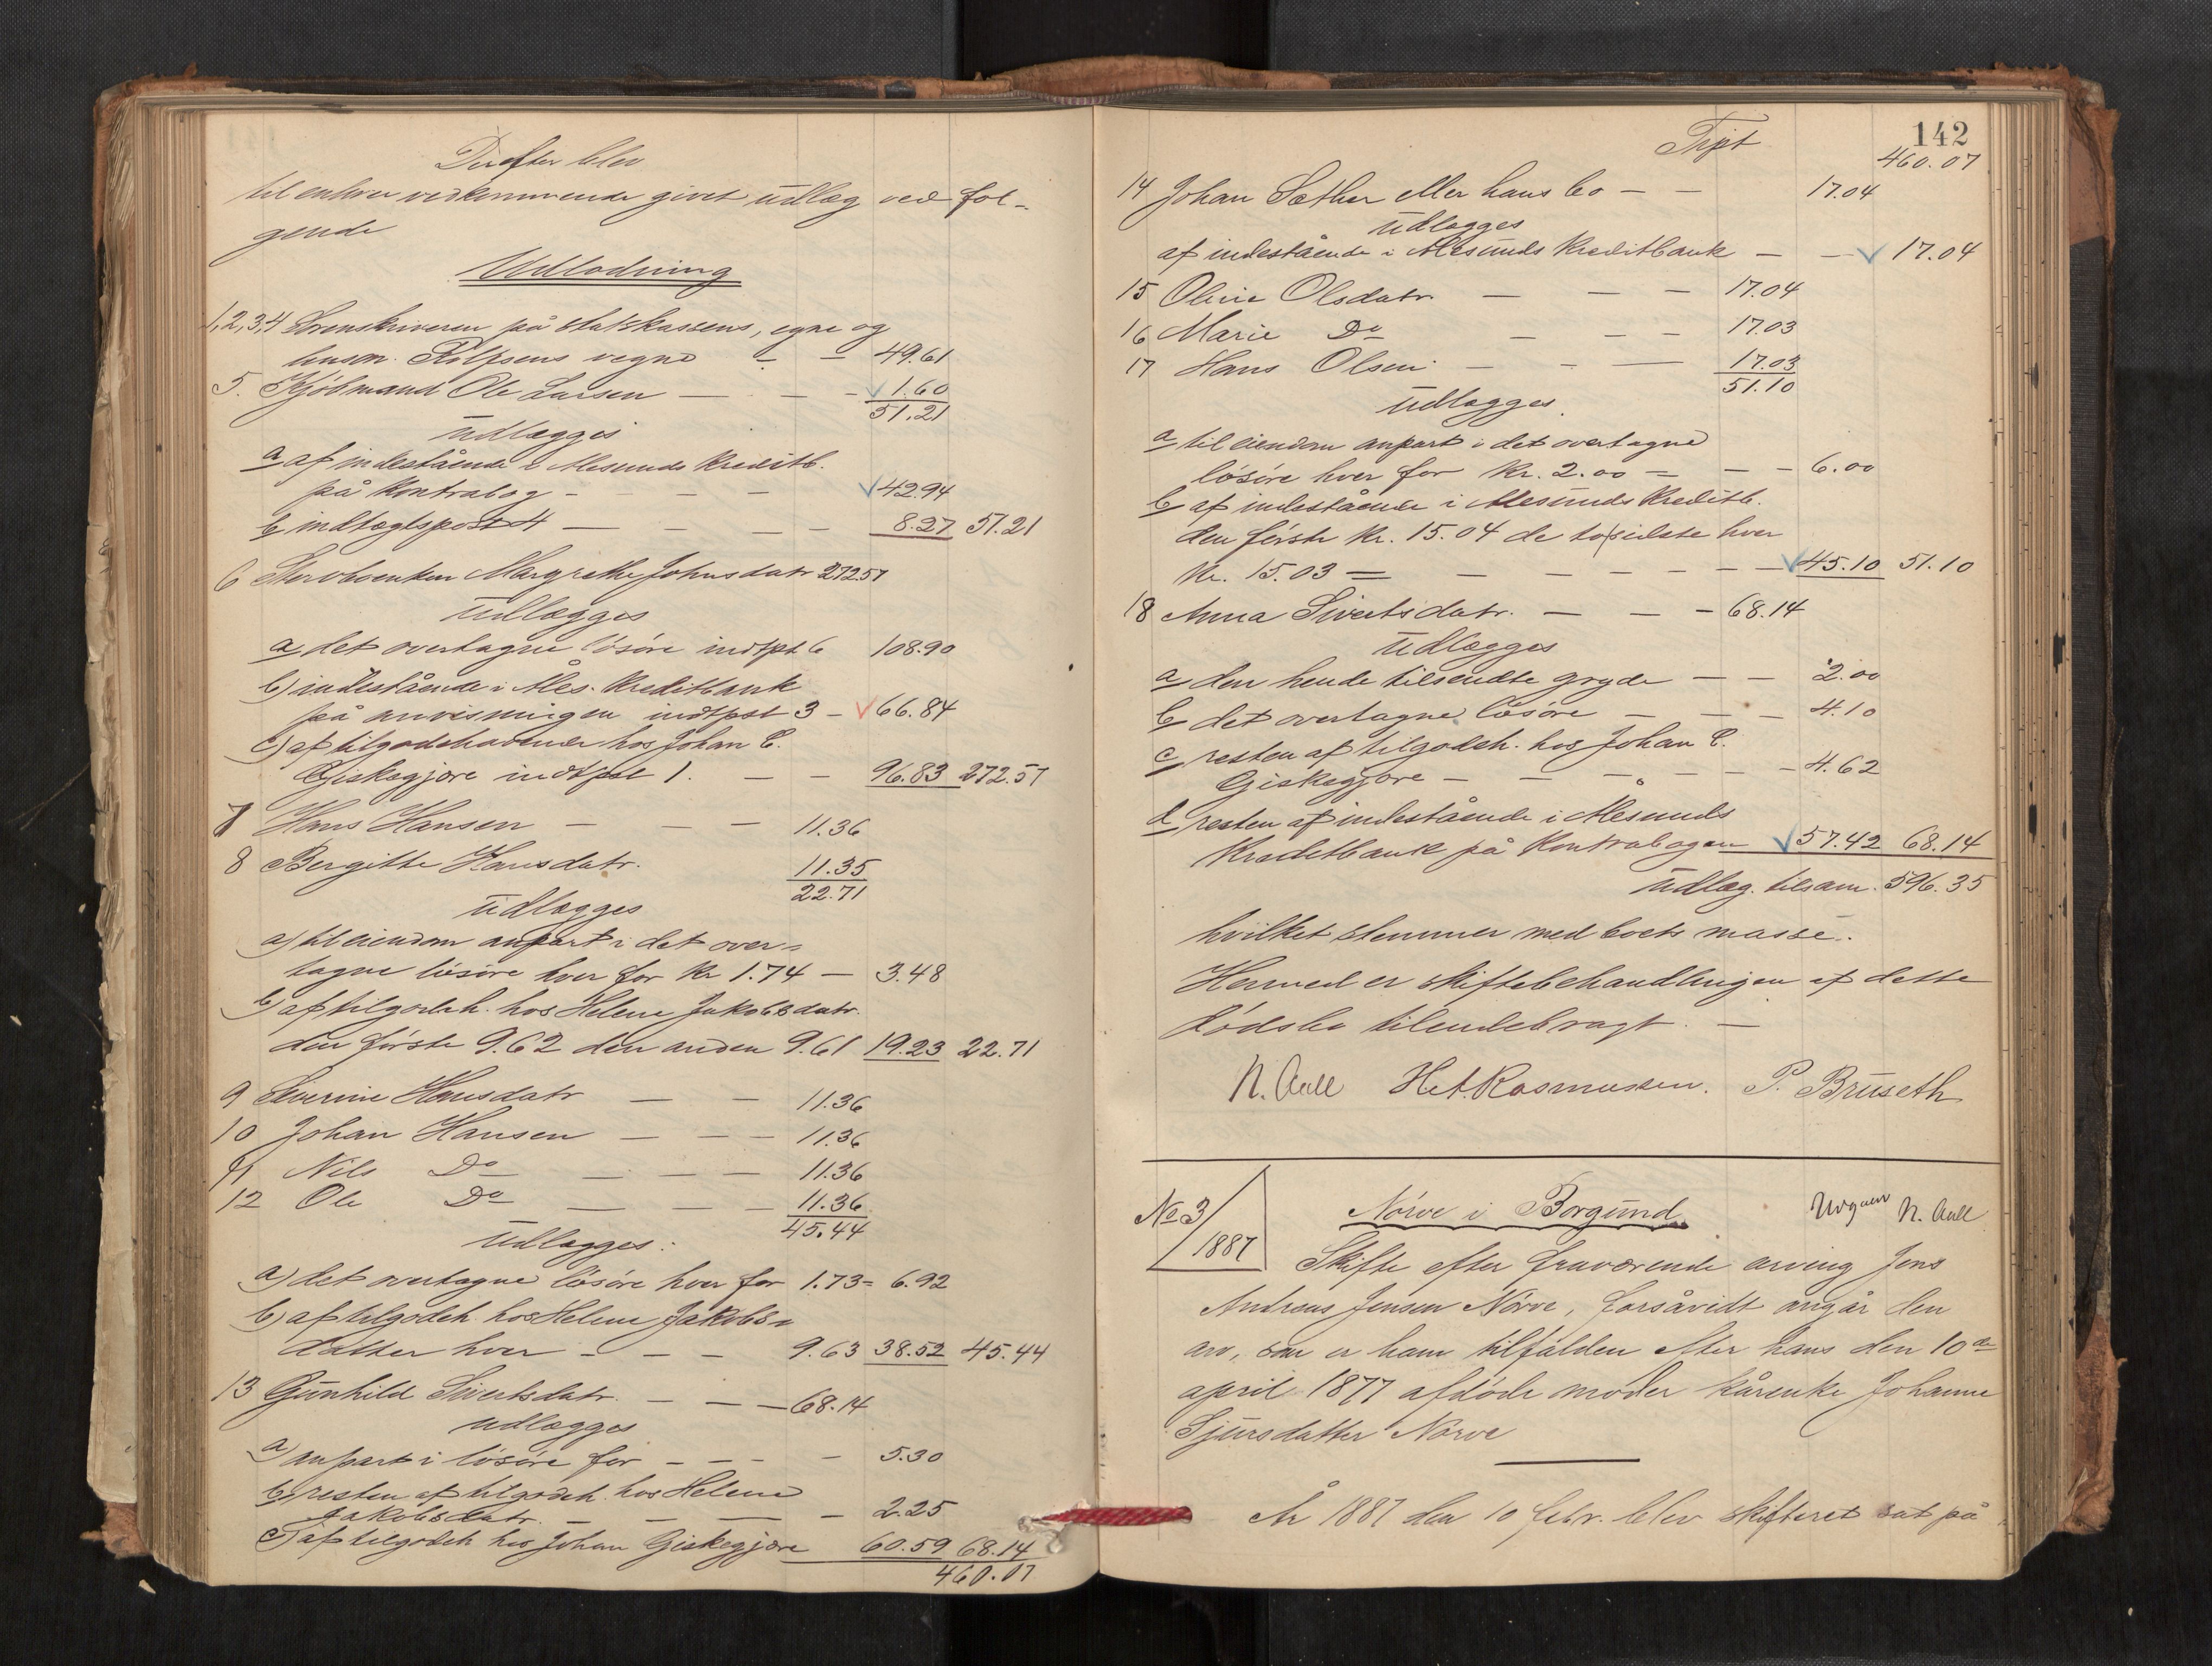 Derefter blev
til enhver vedkommende givet udlæg ved føl-
gende
Udlodning
1,2,3,4 Sorenskriveren på statskassens, egne og
husm. vegne - - 49.61
5. Kjöbmand Ole Larsen - - - 1.60
51.21
udlægges
a af indestående i Alesunds Kreditb.
på Kontrabog - - - - 42.94
b indtægtspost 4 - - - 8.27 51.21
6 Stervboenken Margrethe Johnsdatr 272.57
udlægges
a det overtagne lösöre indtpst 6 108.90
b) indestående i Ales. Kreditbank
på anvisningen indtpst 3 - 66.84
c) af tilgodehavende hos Johan E.
Giskegjøre indtpst 1. - - 96.83 272.57
7 Hans Hansen - - - 11.36
8 Bergitte Hansdatr. 11.35
22.71
udlægges
a) til eiendom anpart i det over-
tagne lösöre hver for Kr 1.74 - 3.48
b) af tilgodeh. hos Helene Jakobsdatr.
den förste 9.62 den anden 9.61 19.23 22.71
9 Severine Hansdatr - - 11.36
10 Johan Hansen - - - 11.36
11 Nils Do - - - 11.36
12 Ole Do - - - 11.36
45.44
udlægges:
a) det overtagne lösöre hver for 1.73 = 6.92
b) af tilgodeh hos Helene Jakobs-
datter hver - - - 9.63 38.52 45.44
13 Gunhild Sivertsdatr. - - - 68.14
udlægges
a) anpart i lösöre for - - - - 5.30
b) resten af tilgodeh. hos Helene
Jakobsdatr. - - - - 2.25
c) af tilgodeh hos Johan Giskegjøre 60.59 68.14
460.07
142
Trspt 460.07
14 Johan Sæther eller hans bo - - 17.04
udlægges
af indestående i Alesunds Kreditbank - - 17.04
15 Oline Olsdatr. - - - 17.04
16 Marie Do - - 17.03
17 Hans Olsen - - - 17.03
51.10
udlægges.
a til eiendom anpart i det overtagne
lösöre hver for Kr. 2.00 = - - 6.00
b af indestående i Alesunds Kreditb.
den förste Kr. 15.04 de to sidste hver
Kr. 15.03 = - - - - - - 45.10 51.10
18 Anna Sivertsdatr. - - - 68.14
udlægges
a den hende tilsendte gryde - - 2.00
b det overtagne lösöre - - - 4.10
c resten af tilgodeh. hos Johan E.
Giskegjøre - - - - - 4.62
d resten af indestående i Alesunds
Kreditbank på Kontrabogen 57.42 68.14
udlæg. tilsam. 596.35
hvilket stemmer med boets masse.
Hermed er skiftebehandlingen af dette
dödsbo tilendebragt. -
N. Aall Het. Rasmussen. P. Bruseth
No 3/1887
Nörve i Borgund N. Aall
Skifte efter fraværende arving Jens
Andreas Jensen Nörve, forsåvidt angår den
arv, som er ham tilfalden efter hans den 10de
april 1877 afdöde moder kårenke Johanne
Sjursdatter Nörve
År 1887 den 10 febr. blev skifteret sat på